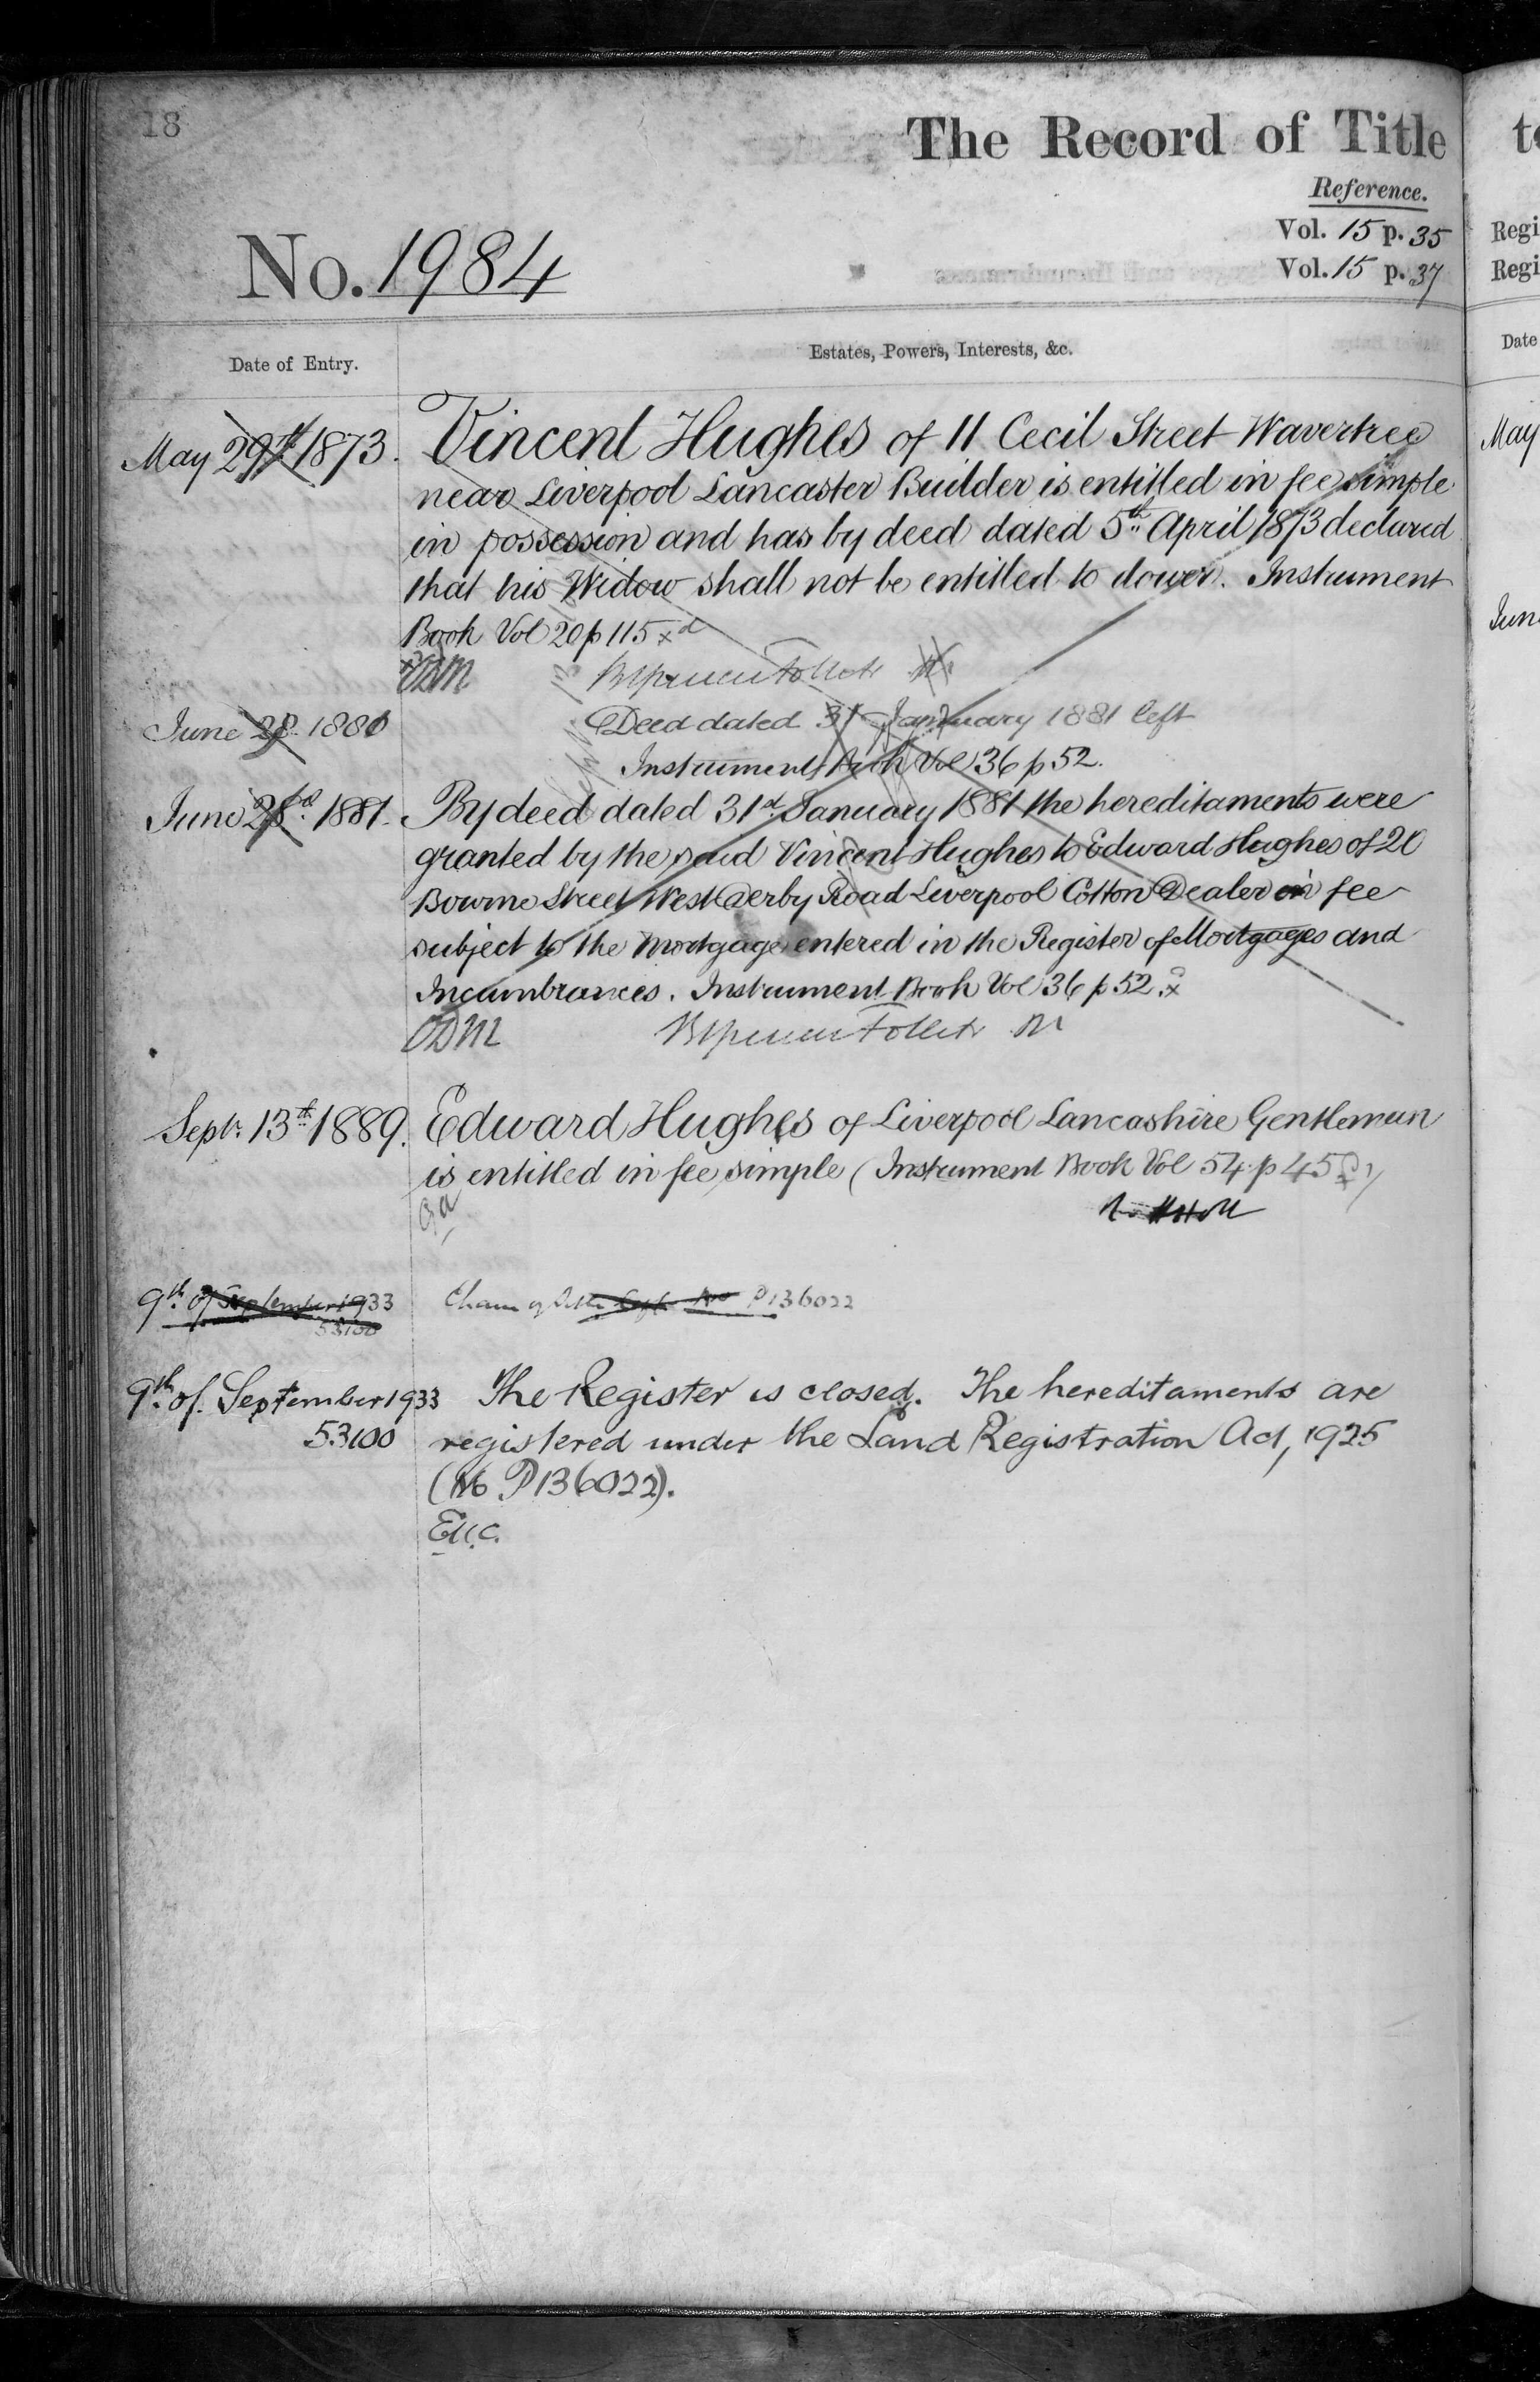 18
The Record of Title
Reference.
Vol. 15 p. 35
Vol. 15 p. 37
No. 1984
Date of Entry.
Estates, Powers, Interests, &c.
May 29th 1873.
Vincent Hughes of 11 Cecil Street Wavertree
near Liverpool Lancaster Builder is entitled in fee simple
in possession and has by deed dated 5th April 1873 declared
that his Widow shall not be entitled to dower. Instrument
Book Vol 20 p 115
June 28 1881
Deed dated 31 January 1881 left
Instrument Book Vol 36 p 52.
June 28th 1881.
By deed dated 31st January 1881 the hereditaments were
granted by the said Vincent Hughes to Edward Hughes of 20
Bourne Street West Derby Road Liverpool Cotton Dealer in fee
subject to the Mortgage entered in the Register of Mortgages and
Incumbrances. Instrument Book Vol 36 p 52.
Sept. 13th 1889.
Edward Hughes of Liverpool Lancashire Gentleman
is entitled in fee simple (Instrument Book Vol 54 p 45
9th of September 1933
53100
P136022
9th of September 1933
53100
The Register is closed. The hereditaments are
registered under the Land Registration Act, 1925
(No P136022).
te
Regi
Regi
Date
May
Jun